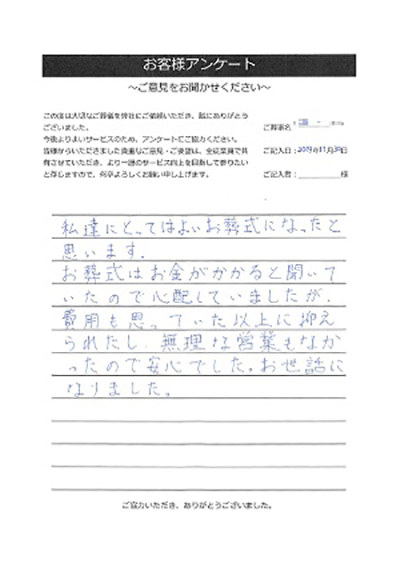 お客様アンケート
〜ご意見をお聞かせください〜
この度は大切なご葬儀を弊社にご依頼いただき、誠にありがとう
ございました。
今後よりよいサービスのため、アンケートにご協力ください。
皆様からいただきました貴重なご意見・ご要望は、全従業員で共
有させていただき、より一層のサービス向上を目指して参りたい
と存じますので、何卒よろしくお願い申し上げます。
ご葬家名：
ご記入日：2019年11月30日
ご記入者： 様
私達にとってはよいお葬式になったと
思います。
お葬式はお金がかかると聞いて
いたので心配していましたが、
費用も思っていた以上に抑え
られたし、無理な営業もなか
ったので安心でした。お世話に
なりました。
ご協力いただき、ありがとうございました。